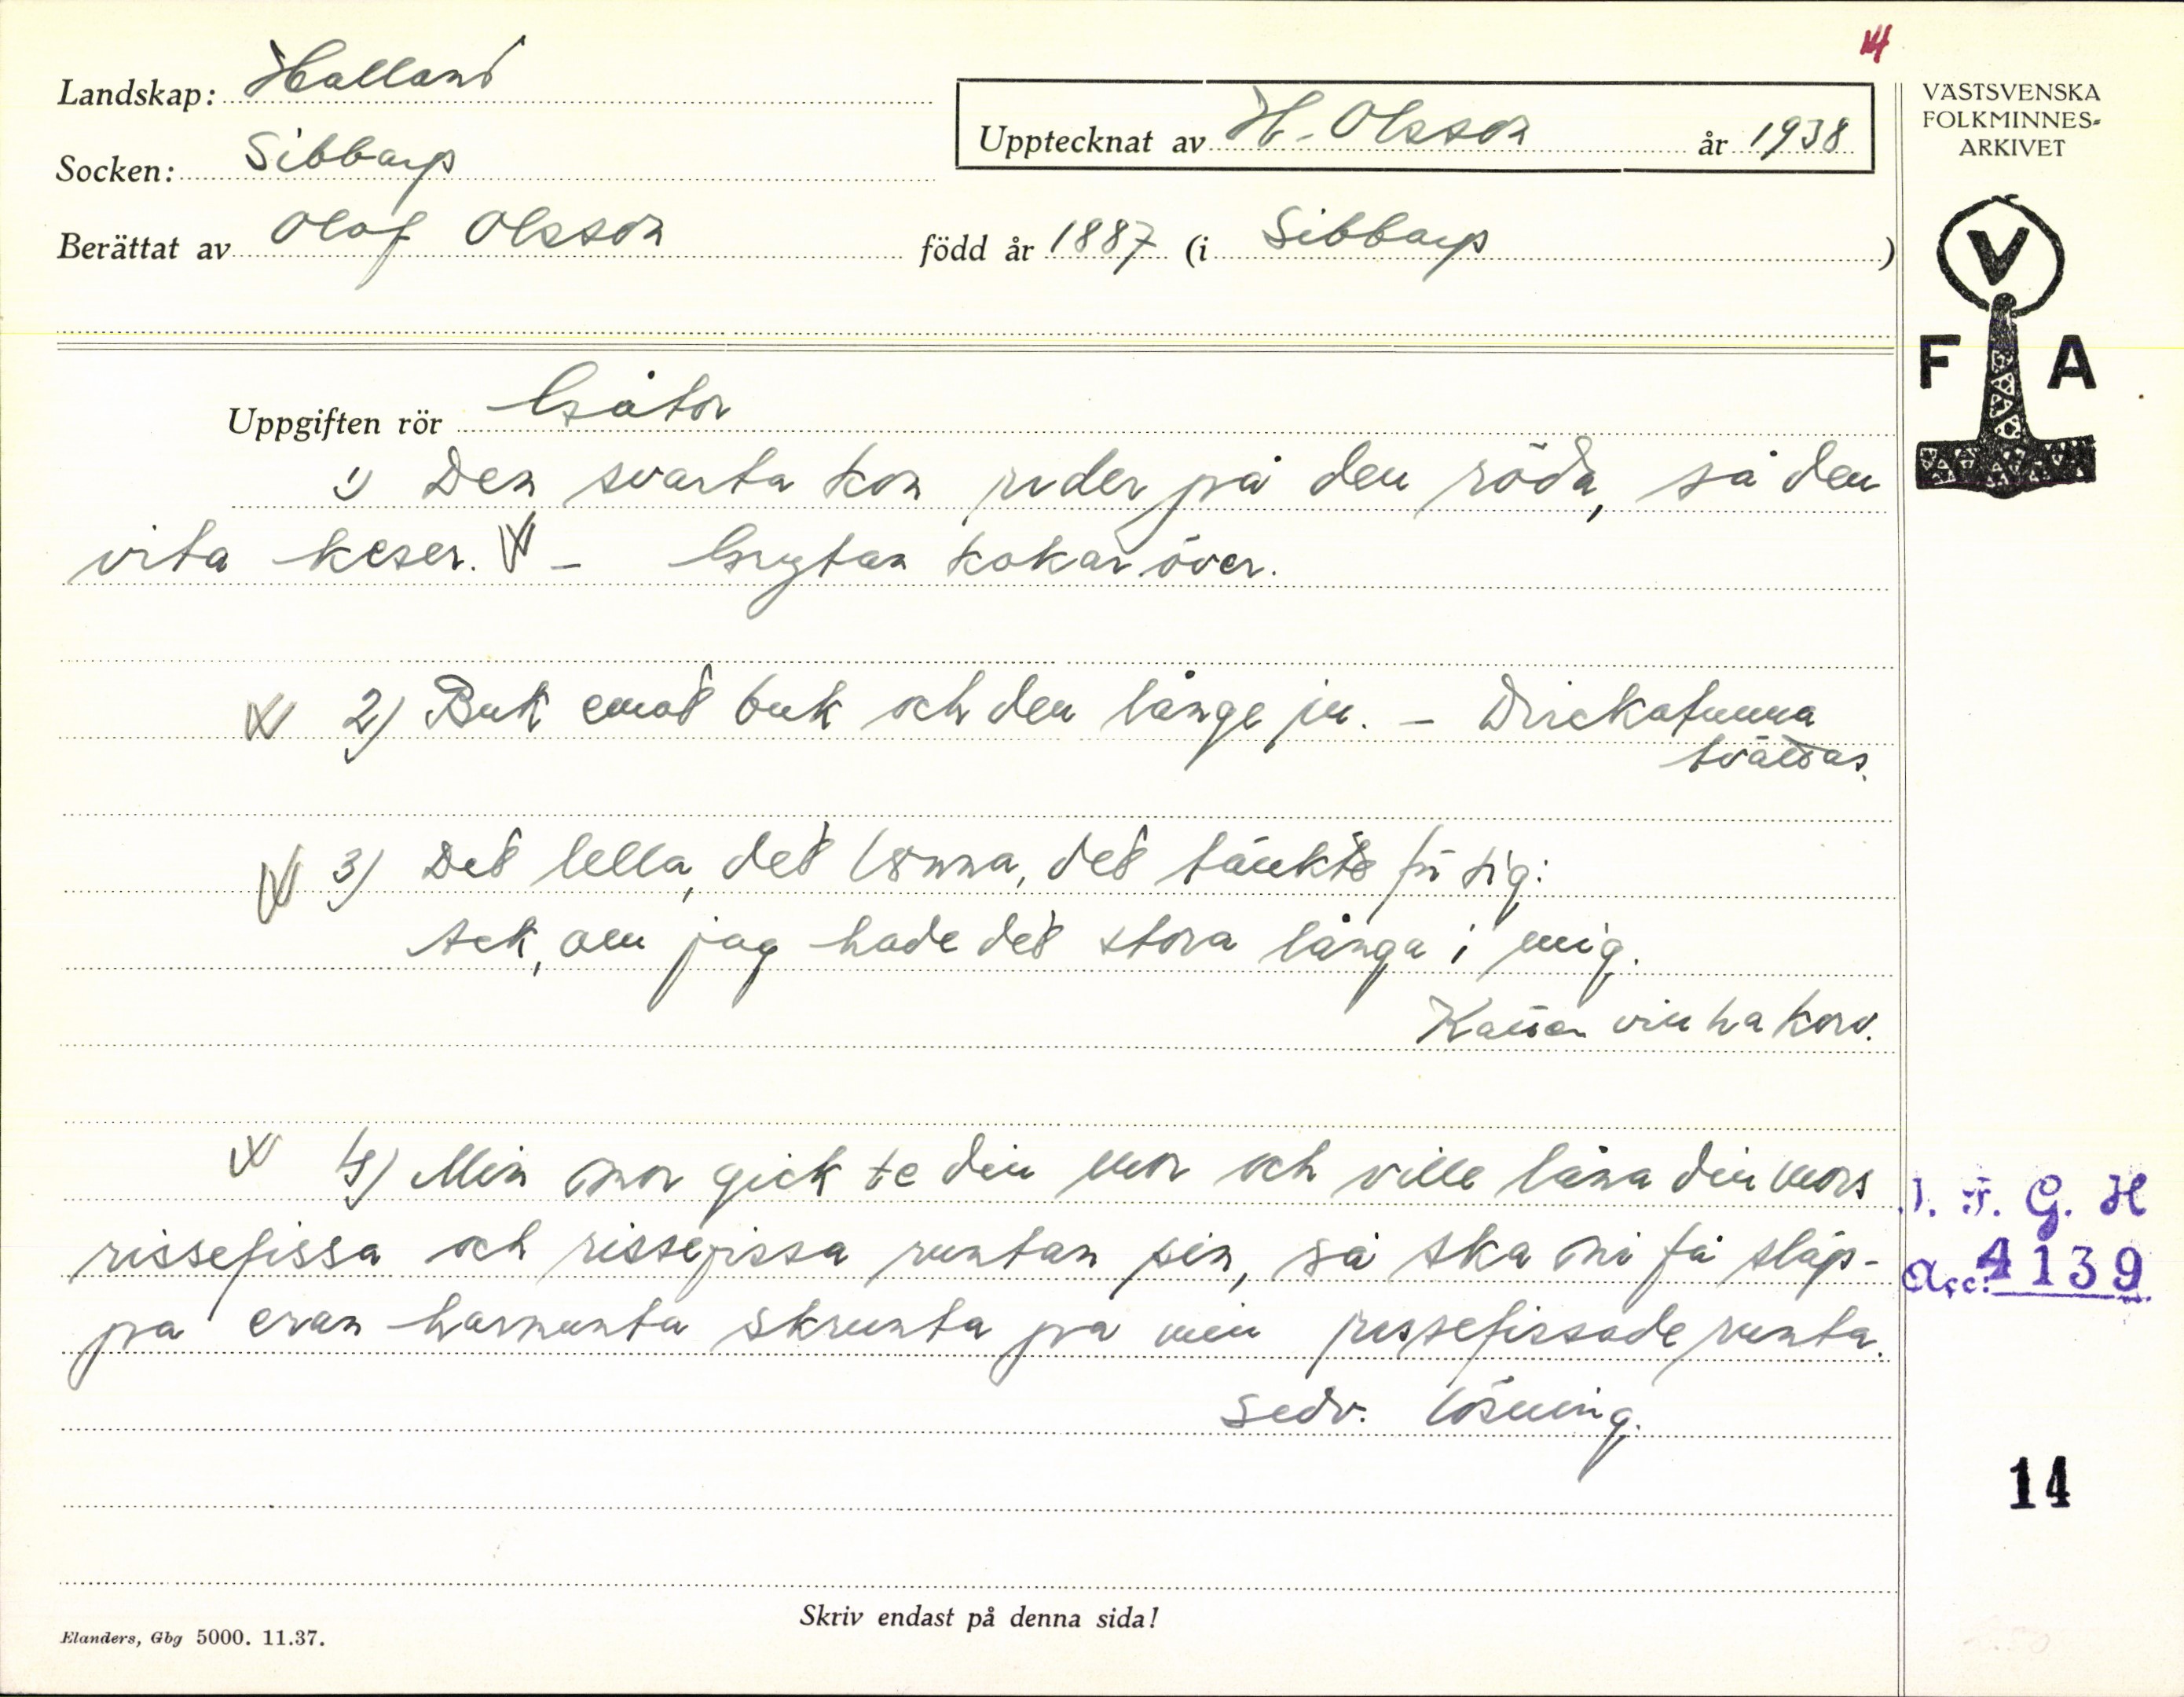 14
Landskap: Halland
Socken: Sibbarp
Upptecknat av H. Olsson år 1938
Berättat av Olof Olsson född år 1887 (i Sibbarp)
VÄSTSVENSKA
FOLKMINNES-
ARKIVET
V
F A
Uppgiften rör Gåtor
1) Den svarta kon rider på den röda, så den
vita keser. – Grytan kokar över.
2) Buk emot buk och den långe in. – Drickatunna
tvättas.
3) Det lella, det lönna, det tänkte för sig:
Ack, om jag hade det stora långa i mig.
Katten vill ha korv.
4) Min mor gick te din mor och ville låna din mors
rissefissa och rissefissa runtan sin, så ska ni få släp-
pa eran harnunta skrunta på min rissefissade runta.
Sedv. lösning.
I. F. G. H
Acc. 4139
14
Skriv endast på denna sida!
Elanders, Gbg 5000. 11.37.